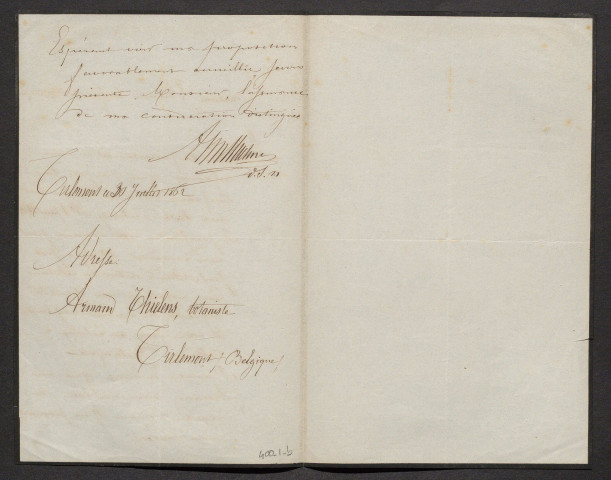 Espérant voir ma proposition
favorablement accueillie, j'ose
présenter, Monsieur, l'hommage
de ma considération distinguée
Tirlemont ce Juillet 1862
Adresse
Armand Thielens, botaniste
Tirlemont, (Belgique)
400.1-b